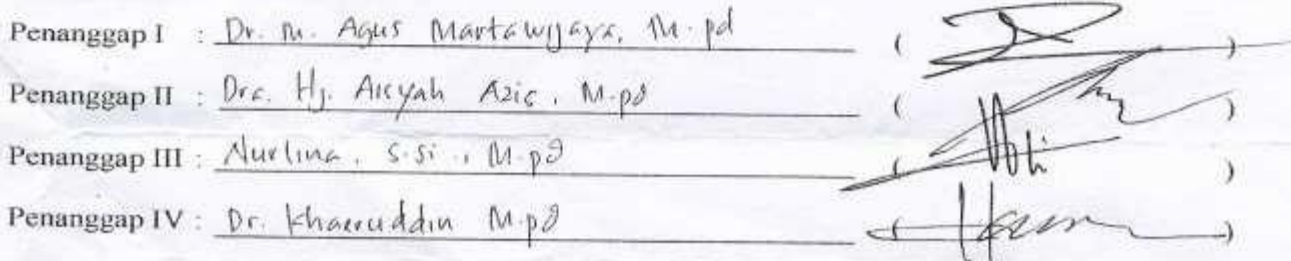 Penanggap I : Dr. M. Agus Martawijaya, M.pd ( )
Penanggap II : Dra. Hj. Aisyah Azis, M.pd ( )
Penanggap III : Nurlina, S.Si., M.pd ( )
Penanggap IV : Dr. Khaeruddin M.pd ( )